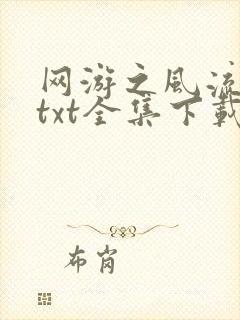 网游之风流
txt全集下载
布肖